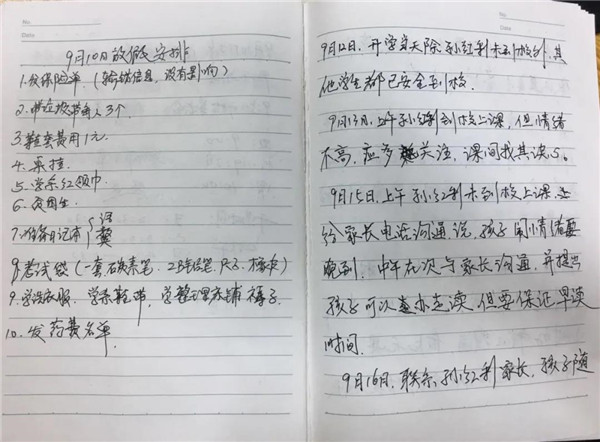 No.
Date
9月10日放假安排
1.收保险单.(转账信息,没有影响)
2.带在校节目人3个.
3.鞋套费用1元.
4.乘接
5.学系红领巾
6.
7.准备日记本{语 数
8.考试袋(一套石炭素笔.2B铅笔.尺子.橡皮)
9.学洗衣服.学系鞋带.学整理床铺 裤子.
10.发药费名单.
No.
Date
9月12日.开学当天除孙红利未到校外,其
他学生都已安全到校.
9月13号.上午孙红利到校上课,但情绪
不高,应多关注,课间找其谈心.
9月15日.上午孙红利未到校上课.
给家长电话沟通,说,孩子闹情绪要
晚到.中午在次与家长沟通,并提出
孩子可以查办走读.但要保证早读
时间.
9月16日.联系孙红利家长,孩子随